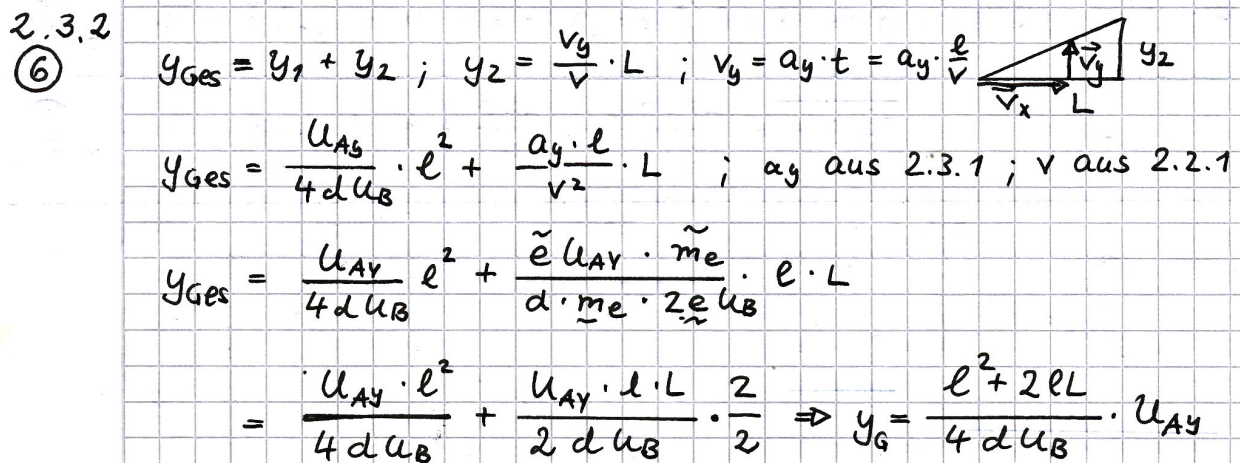 2.3.2
⑥ y_Ges = y_1 + y_2 ; y_2 = v_y/v · L ; v_y = a_y · t = a_y · ℓ/v
v⃗_y y_2
v⃗_x L
y_Ges = U_Ay/(4 d U_B) · ℓ² + (a_y · ℓ)/v² · L ; a_y aus 2.3.1 ; v aus 2.2.1
y_Ges = U_AY/(4 d U_B) ℓ² + (e U_AY · m_e)/(d · m_e · 2 e U_B) · ℓ · L
= (U_AY · ℓ²)/(4 d U_B) + (U_AY · ℓ · L)/(2 d U_B) · 2/2 ⇒ y_G = (ℓ² + 2ℓL)/(4 d U_B) · U_AY